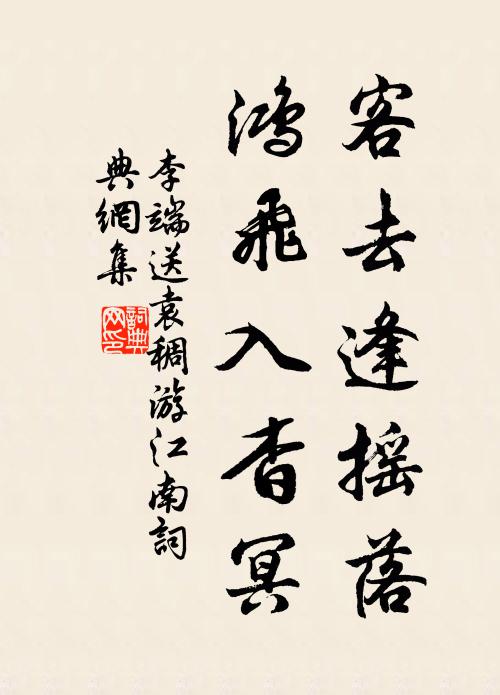 客去逢摇落
鸿飞入杳冥
李端送袁稠游江南詞
典網集
詞典网印